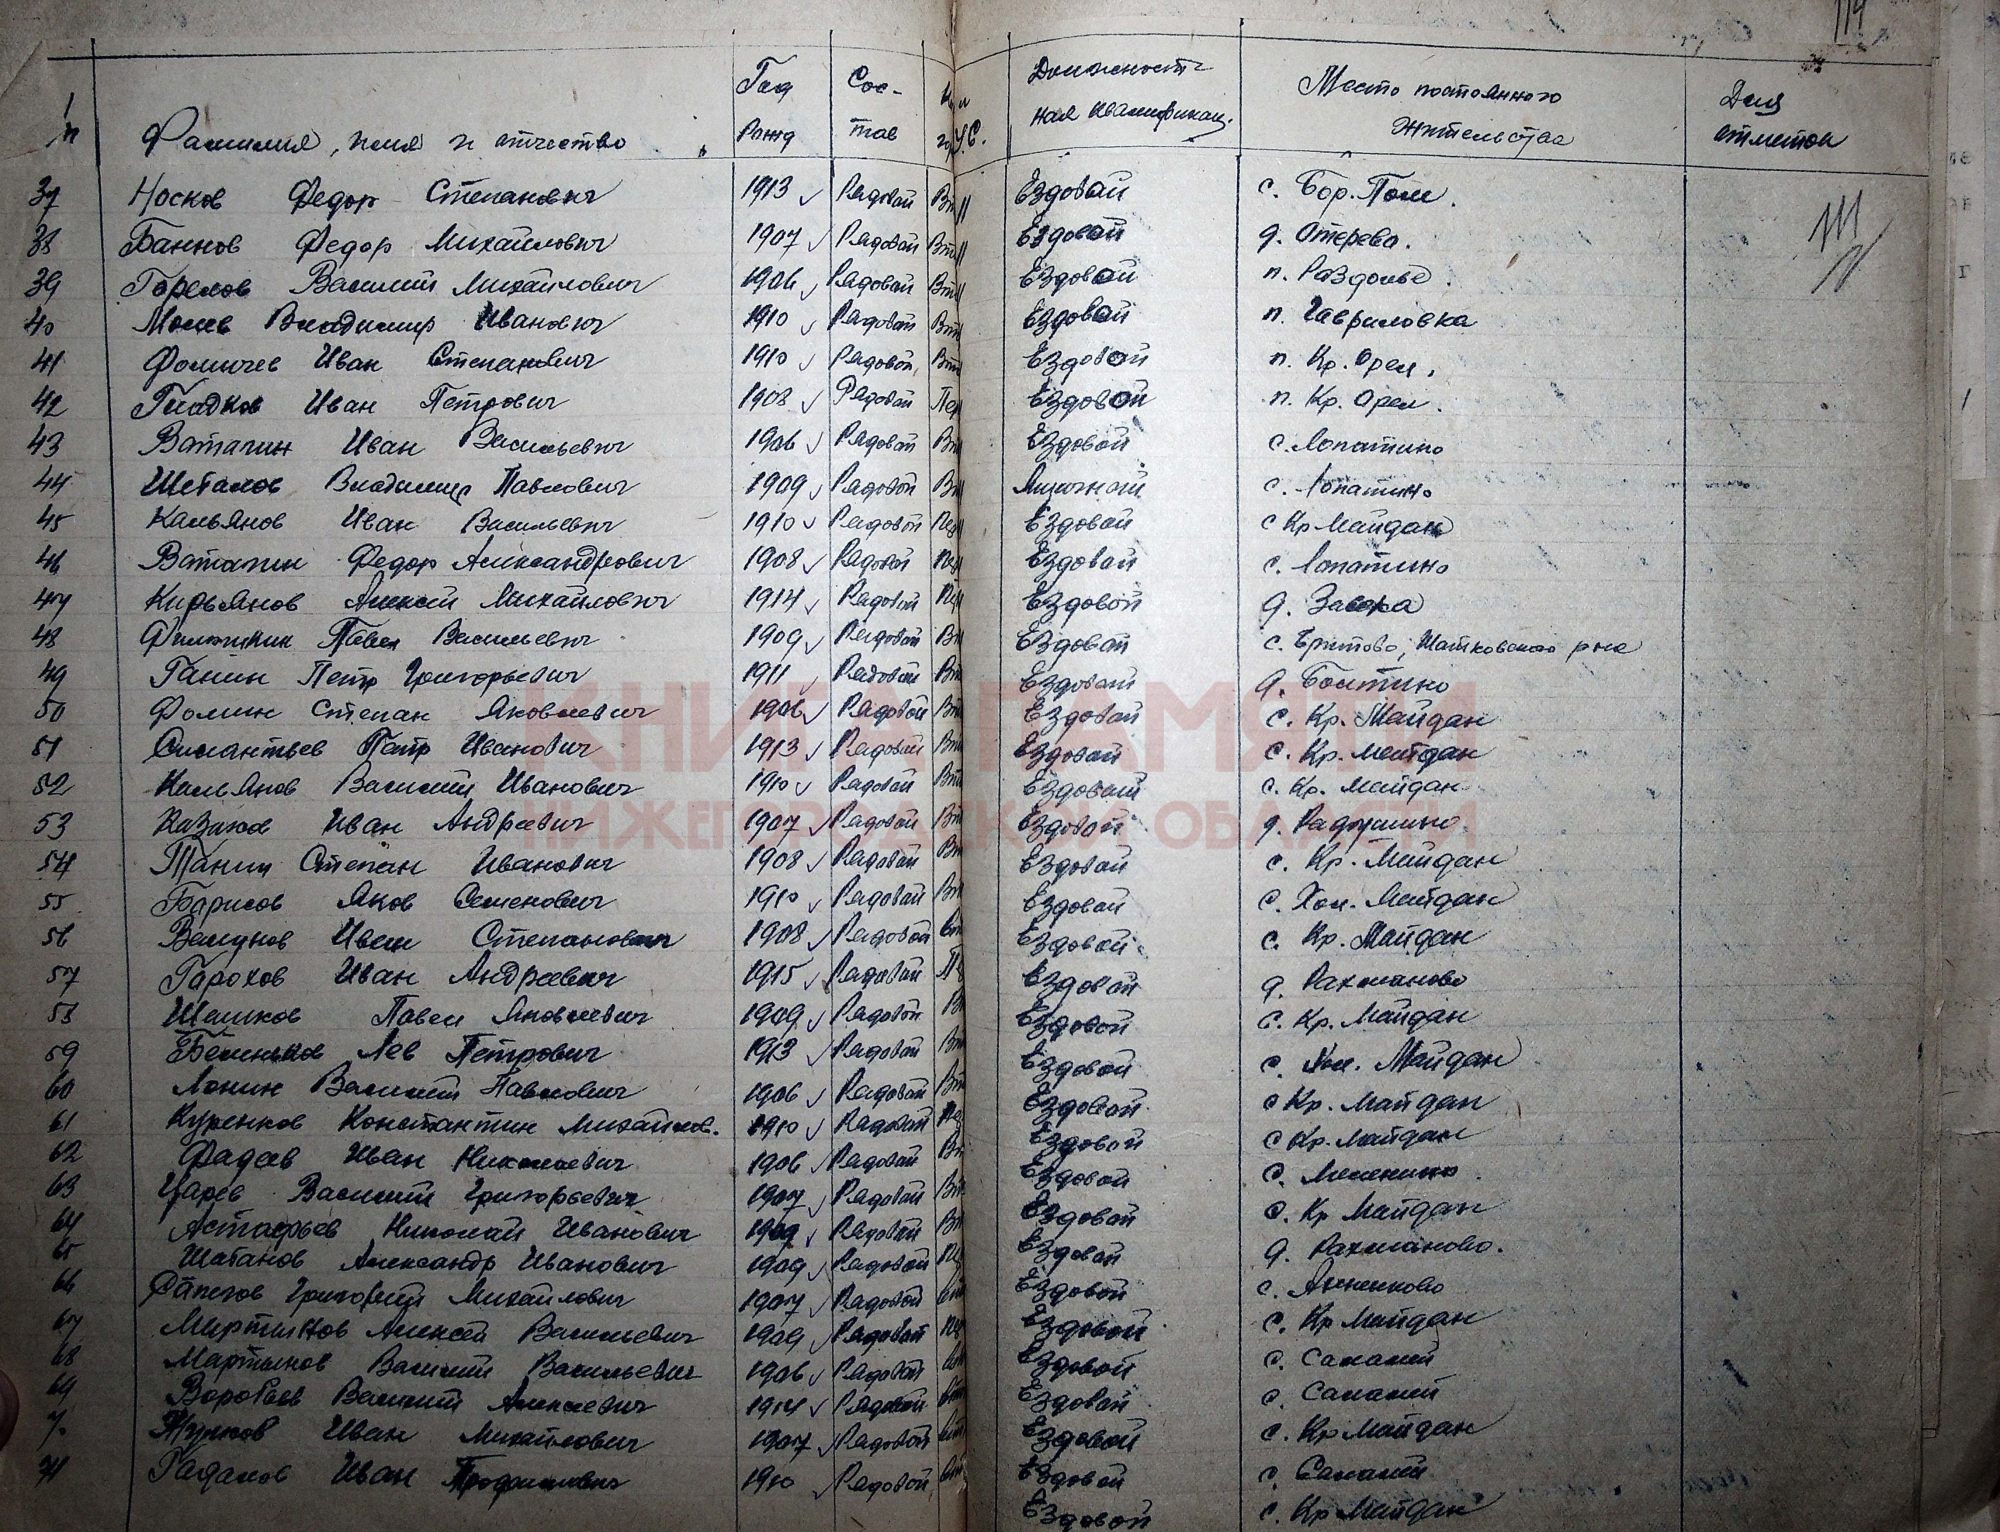 114
№ п/п Фамилия, имя и отчество Год рожд Состав У.С. Должностная квалификац. Место постоянного жительства Для отметок
37 Носков Федор Степанович 1913 Рядовой Вт Ездовой с. Бор. Пол.
38 Баннов Федор Михайлович 1907 Рядовой Вт Ездовой д. Отерево.
39 Горелов Василий Михайлович 1906 Рядовой Вт Ездовой п. Раздолье.
40 Владимир Иванович 1910 Рядовой Вт Ездовой п. Гавриловка
41 Фомичев Иван Степанович 1910 Рядовой Вт Ездовой п. Кр. Орел.
42 Гладков Иван Петрович 1908 Рядовой Пер Ездовой п. Кр. Орел.
43 Ватагин Иван Васильевич 1906 Рядовой Вт Ездовой с. Лопатино
44 Владимир Павлович 1909 Рядовой Вт с. Лопатино
45 Кальянов Иван Васильевич 1910 Рядовой Пер Ездовой с Кр Майдан
46 Ватагин Федор Александрович 1908 Рядовой Пер Ездовой с. Лопатино
47 Кирьянов Алексей Михайлович 1914 Рядовой Пер Ездовой д.
48 Павел Васильевич 1909 Рядовой Вт Ездовой с. Бритово, Шатковского р-на
49 Ганин Петр Григорьевич 1911 Рядовой Вт Ездовой д. Болтино
50 Фомин Степан Яковлевич 1906 Рядовой Вт Ездовой с. Кр. Майдан
51 Силантьев Петр Иванович 1913 Рядовой Вт Ездовой с. Кр. Майдан
52 Кальянов Василий Иванович 1910 Рядовой Вт Ездовой с. Кр. Майдан
53 Казаков Иван Андреевич 1907 Рядовой Вт Ездовой д.
54 Степан Иванович 1908 Рядовой Вт Ездовой с. Кр. Майдан
55 Борисов Яков Семенович 1910 Рядовой Вт Ездовой с. Хол. Майдан
56 Иван Степанович 1908 Рядовой Вт Ездовой с. Кр. Майдан
57 Горохов Иван Андреевич 1915 Рядовой Пе Ездовой д. Рахманово
58 Шешков Павел Яковлевич 1909 Рядовой Вт Ездовой с. Кр. Майдан
59 Беленьков Лев Петрович 1913 Рядовой Вт Ездовой с. Хол. Майдан
60 Лонин Василий Павлович 1906 Рядовой Вт Ездовой с Кр. Майдан
61 Куренков Константин Михайлов. 1910 Рядовой Пер Ездовой с Кр. Майдан
62 Фадеев Иван Николаевич 1906 Рядовой Вт Ездовой с.
63 Царев Василий Григорьевич 1907 Рядовой Вт Ездовой с. Кр Майдан
64 Астафьев Николай Иванович 1909 Рядовой Вт Ездовой д. Рахманово.
65 Шатанов Александр Иванович 1909 Рядовой Пер Ездовой с. Анненково
66 Григорий Михайлович 1907 Рядовой Ездовой с. Кр Майдан
67 Мартынов Алексей Васильевич 1909 Рядовой Пер Ездовой с. Саканы
68 Мартынов Василий Васильевич 1906 Рядовой Ездовой с. Саканы
69 Воробьев Василий Алексеевич 1914 Рядовой Ездовой с. Кр Майдан
70 Иван Михайлович 1907 Рядовой Ездовой с. Саканы
71 Иван Трофимович 1910 Рядовой Ездовой с. Кр Майдан
КНИГА ПАМЯТИ
НИЖЕГОРОДСКОЙ ОБЛАСТИ